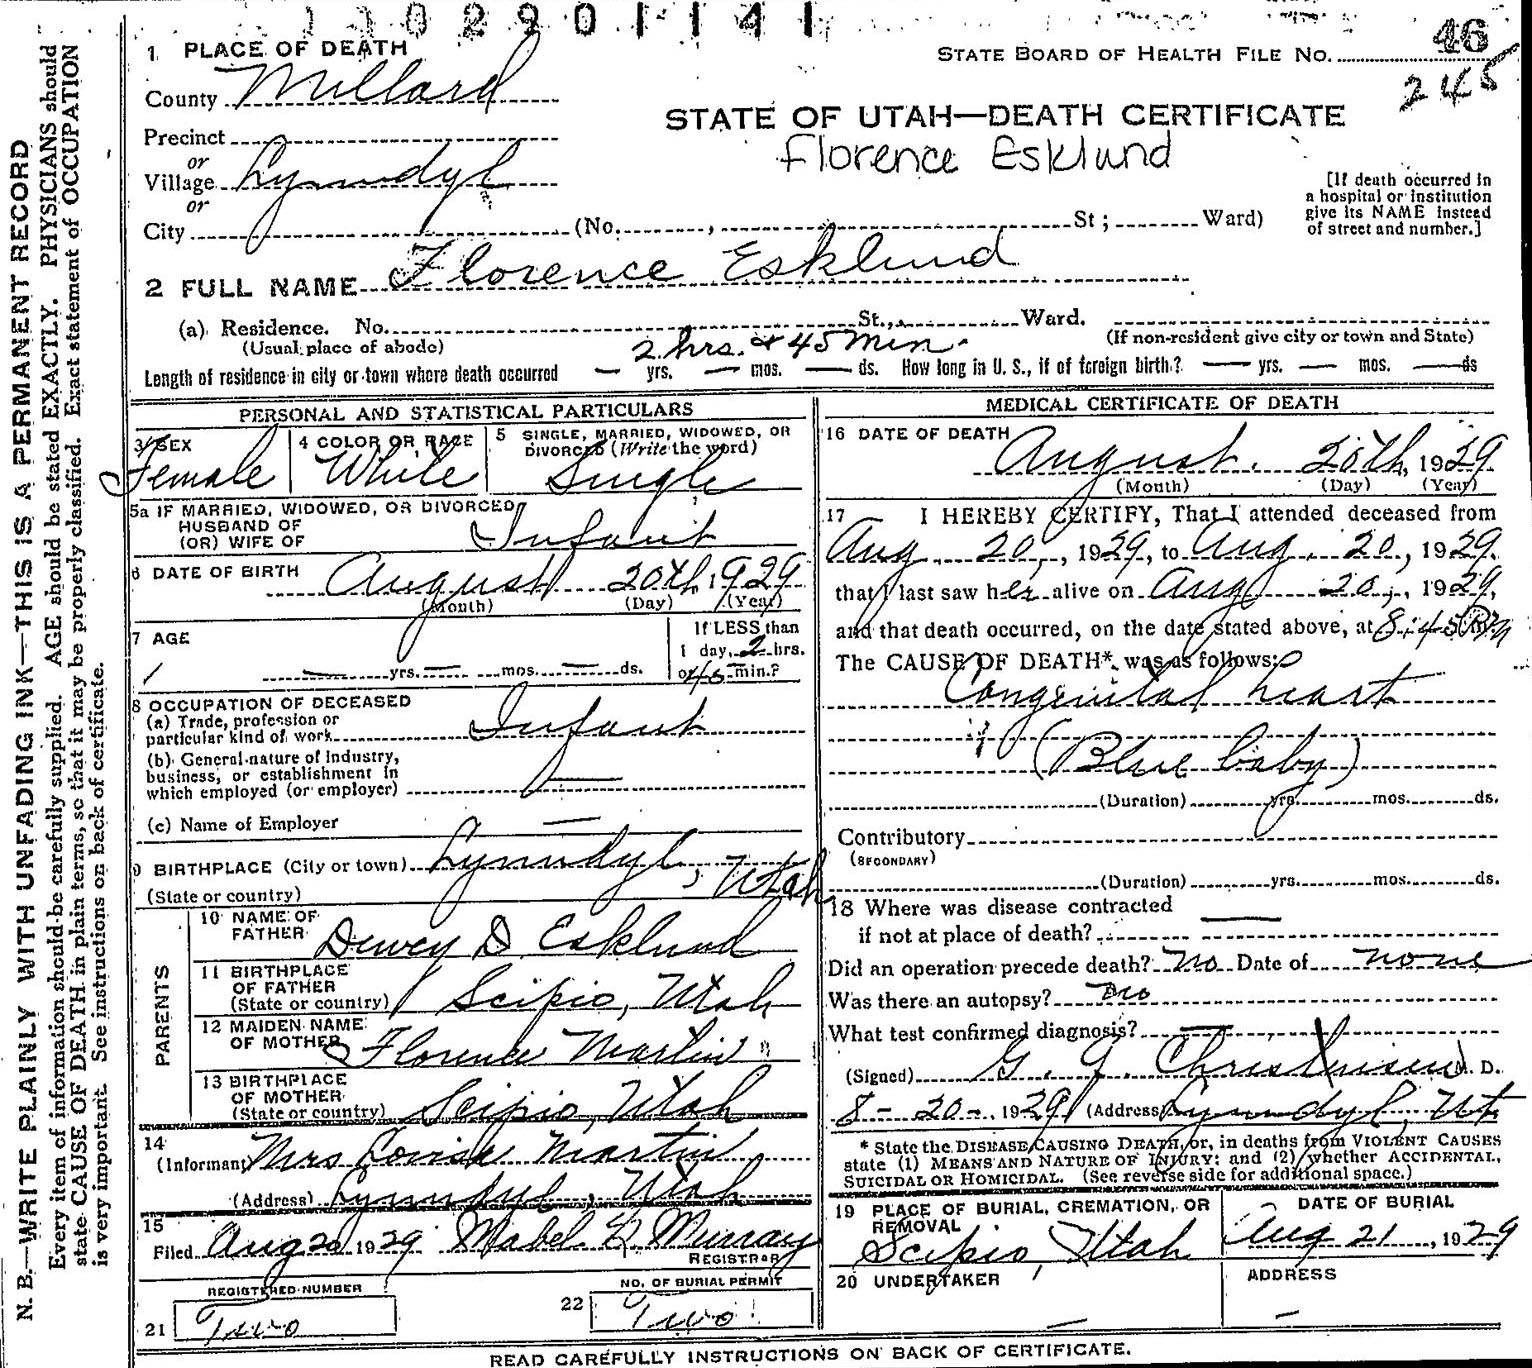 1 0 2 9 0 1 1 4 1
1 PLACE OF DEATH
STATE BOARD OF HEALTH FILE NO. 46
245
County Millard
STATE OF UTAH—DEATH CERTIFICATE
Florence Esklund
Precinct
or
Village Lynndyl
or
City (No. , St ; Ward)
[If death occurred in
a hospital or institution
give its NAME instead
of street and number.]
2 FULL NAME Florence Esklund
(a) Residence. No. St., Ward.
(Usual place of abode)
(If non-resident give city or town and State)
2 hrs. & 45 min.
Length of residence in city or town where death occurred — yrs. — mos. — ds. How long in U. S., if of foreign birth? — yrs. — mos. — ds
PERSONAL AND STATISTICAL PARTICULARS
3 SEX
Female
4 COLOR OR RACE
White
5 SINGLE, MARRIED, WIDOWED, OR
DIVORCED (Write the word)
Single
5a IF MARRIED, WIDOWED, OR DIVORCED
HUSBAND OF
(OR) WIFE OF
Infant
6 DATE OF BIRTH August 20th, 1929
(Month) (Day) (Year)
7 AGE
— yrs. — mos. — ds.
If LESS than
1 day, 2 hrs.
or 45 min.?
8 OCCUPATION OF DECEASED
(a) Trade, profession or
particular kind of work Infant
(b) General nature of industry,
business, or establishment in
which employed (or employer) —
(c) Name of Employer —
9 BIRTHPLACE (City or town) Lynndyl, Utah
(State or country)
PARENTS
10 NAME OF
FATHER Dewey D. Esklund
11 BIRTHPLACE
OF FATHER
(State or country) Scipio, Utah
12 MAIDEN NAME
OF MOTHER Florence Martin
13 BIRTHPLACE
OF MOTHER
(State or country) Scipio, Utah
14
(Informant) Mrs Louisa Martin
(Address) Lynndyl, Utah
15
Filed Aug 20 1929 Mabel Murray
REGISTRAR
REGISTERED NUMBER
21 Two
NO. OF BURIAL PERMIT
22 Two
MEDICAL CERTIFICATE OF DEATH
16 DATE OF DEATH
August 20th, 1929
(Month) (Day) (Year)
17 I HEREBY CERTIFY, That I attended deceased from
Aug. 20, 1929, to Aug. 20, 1929,
that I last saw her alive on Aug 20, 1929,
and that death occurred, on the date stated above, at 8:45 P m
The CAUSE OF DEATH* was as follows:
Congenital heart
(Blue baby)
(Duration) yrs. mos. ds.
Contributory
(SECONDARY)
(Duration) yrs. mos. ds.
18 Where was disease contracted
if not at place of death? —
Did an operation precede death? No Date of none
Was there an autopsy? no
What test confirmed diagnosis? —
(Signed) G. J. Christensen M. D.
8-20-, 1929 (Address) Lynndyl, Ut
* State the DISEASE CAUSING DEATH, or, in deaths from VIOLENT CAUSES
state (1) MEANS AND NATURE OF INJURY; and (2) whether ACCIDENTAL,
SUICIDAL OR HOMICIDAL. (See reverse side for additional space.)
19 PLACE OF BURIAL, CREMATION, OR
REMOVAL
Scipio, Utah
DATE OF BURIAL
Aug 21, 1929
20 UNDERTAKER
—
ADDRESS
—
READ CAREFULLY INSTRUCTIONS ON BACK OF CERTIFICATE.
N. B.—WRITE PLAINLY WITH UNFADING INK—THIS IS A PERMANENT RECORD
Every item of information should be carefully supplied. AGE should be stated EXACTLY. PHYSICIANS should
state CAUSE OF DEATH in plain terms, so that it may be properly classified. Exact statement of OCCUPATION
is very important. See instructions on back of certificate.